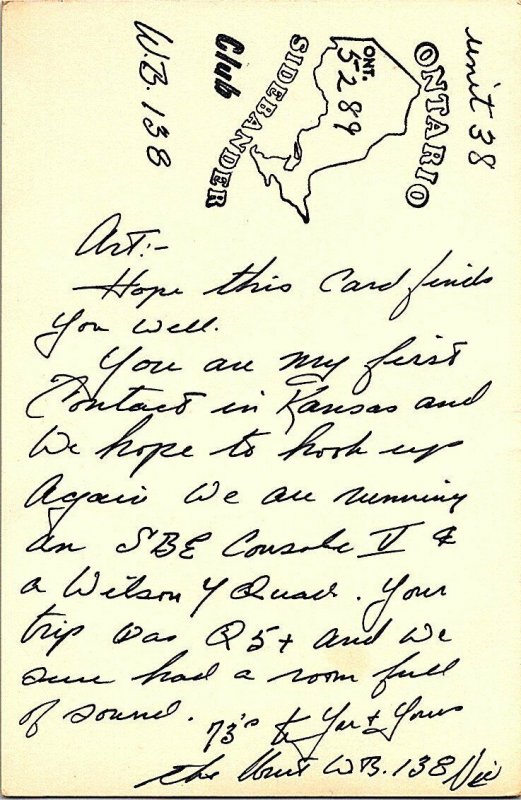 unit 38
ONTARIO
ONT.
5289
SIDEBANDER
Club
W.B. 138
Art:-
Hope this Card finds
you well.
You are my first
Contact in Kansas and
We hope to hook up
Again We are running
an SBE Console II &
a Wilson Y Quad. Your
trip was Q5+ and we
sure had a room full
of sound.
73's to You & Yours
the Unit WB. 138 Vic